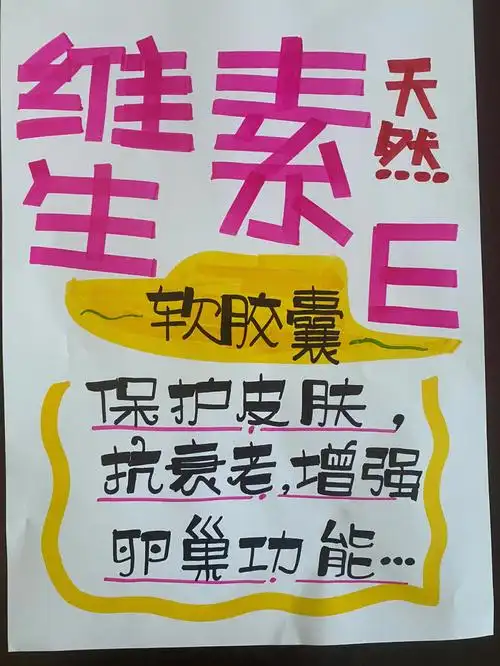 天然
维生素E
软胶囊
保护皮肤，
抗衰老，增强
卵巢功能…